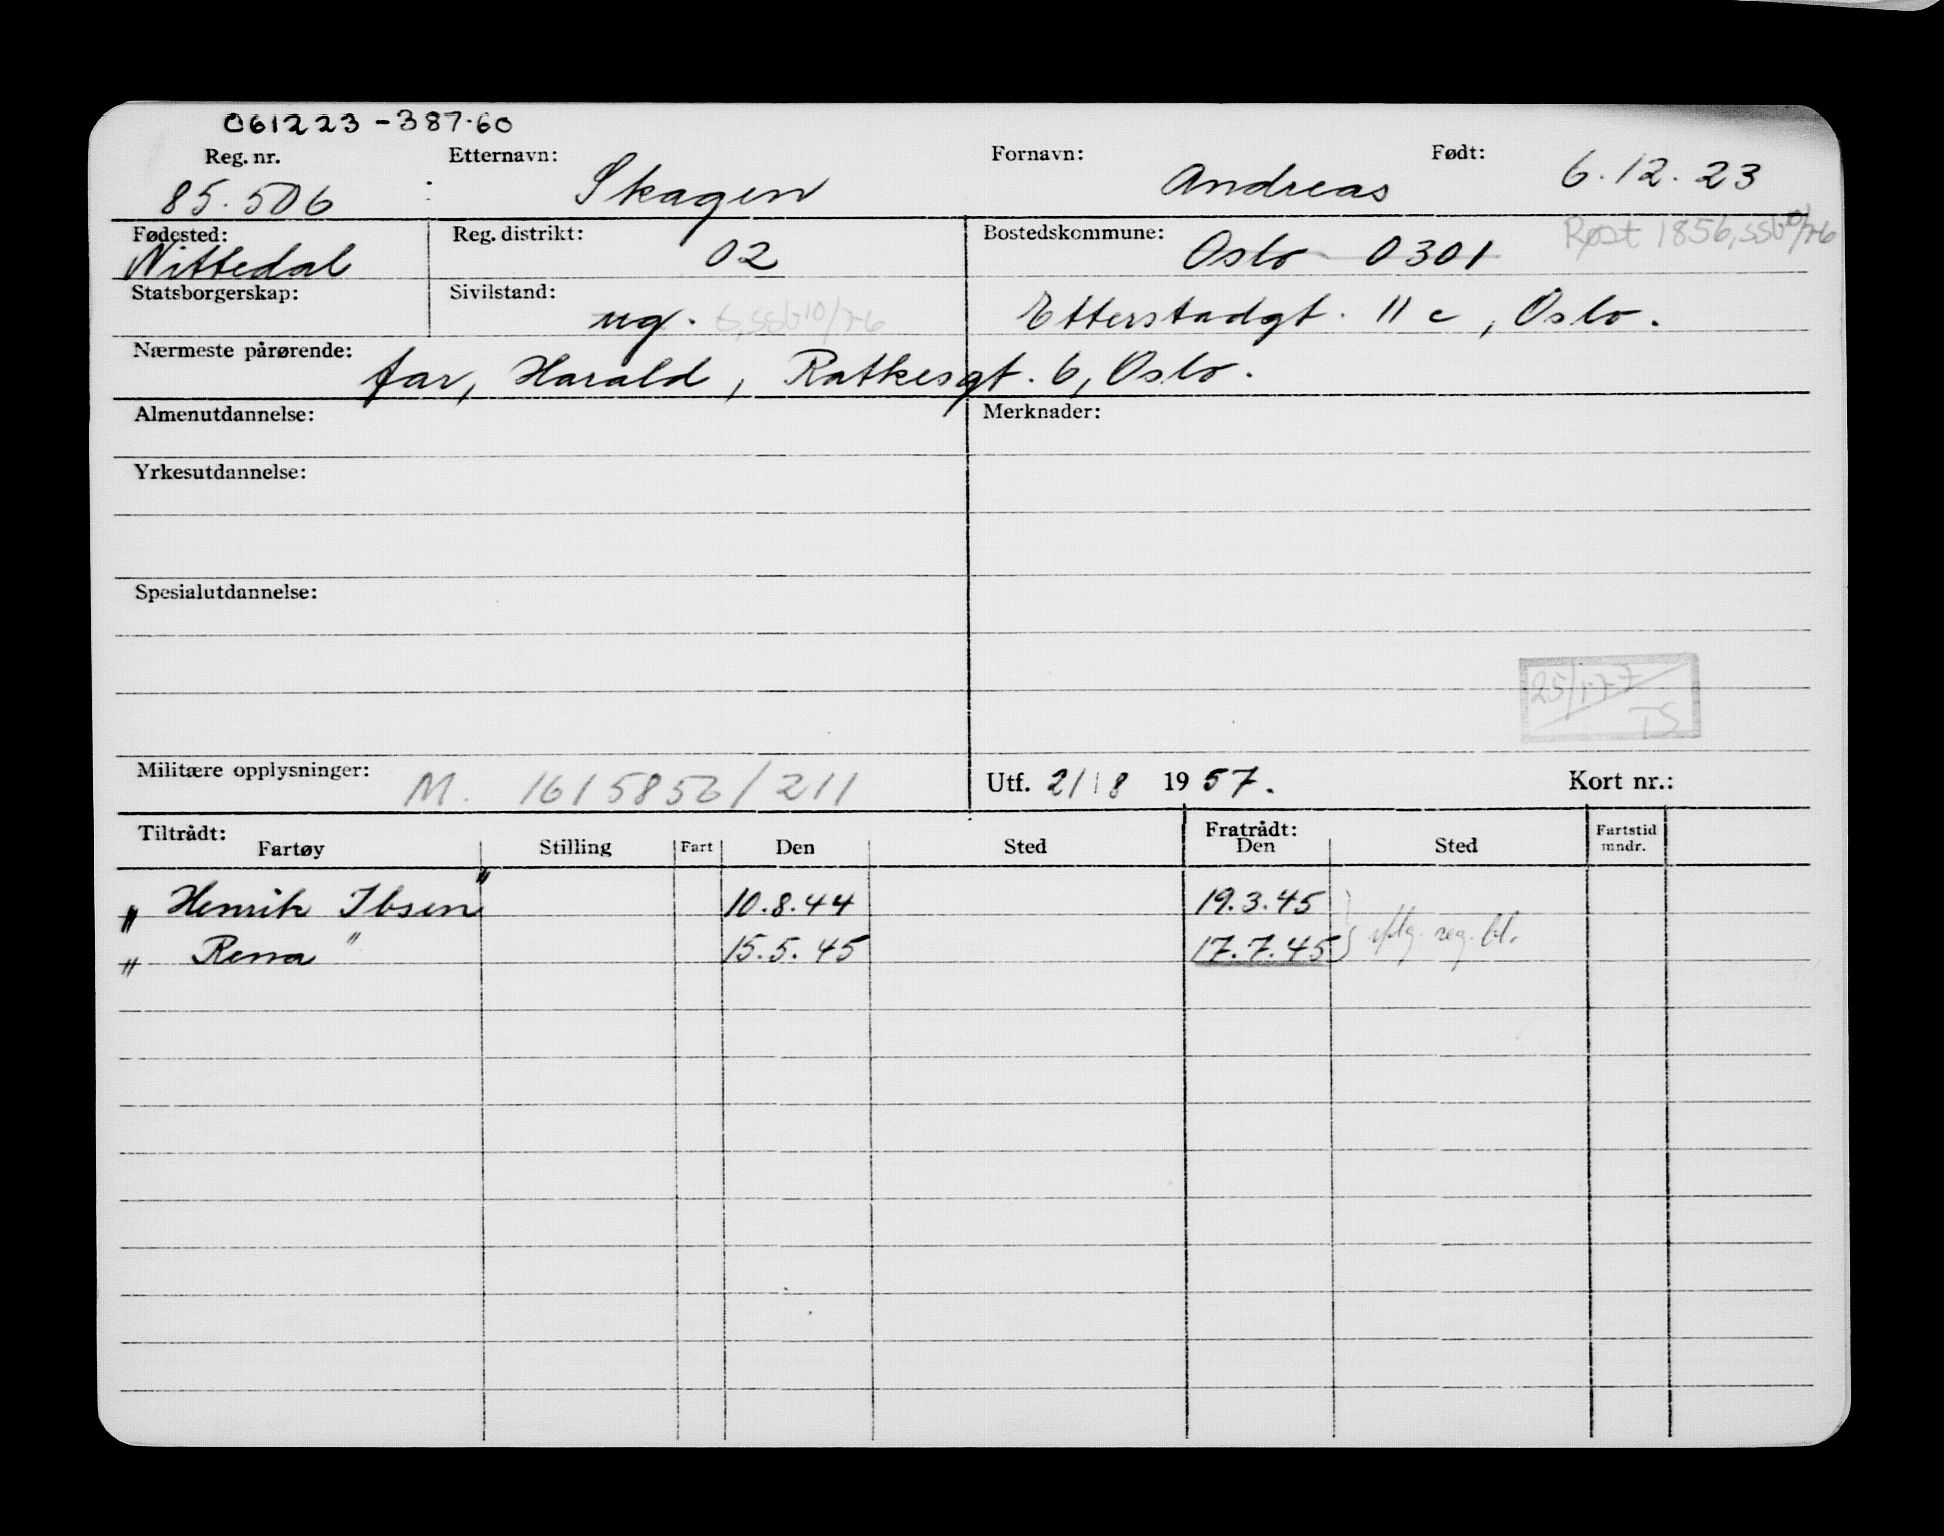 061223-387.60
Reg. nr. Etternavn: Fornavn: Født:
85.506 Skagen Andreas 6.12.23
Fødested: Reg. distrikt: Bostedskommune: Røst 1856, SSB
Nittedal 02 Oslo 0301
Statsborgerskap: Sivilstand:
ug. Etterstadgt. 11 c, Oslo.
Nærmeste pårørende:
far, Harald, Ratkesgt. 6, Oslo.
Almenutdannelse: Merknader:
Yrkesutdannelse:
Spesialutdannelse:
25/1-77
TS
Militære opplysninger: M. Utf. 21/8 1957. Kort nr.:
Tiltrådt: Fratrådt: Fartstid
Fartøy Stilling Fart Den Sted Den Sted mndr.
" Henrik Ibsen" 10.8.44 19.3.45
" Rena " 15.5.45 17.7.45 iflg. reg. bl.